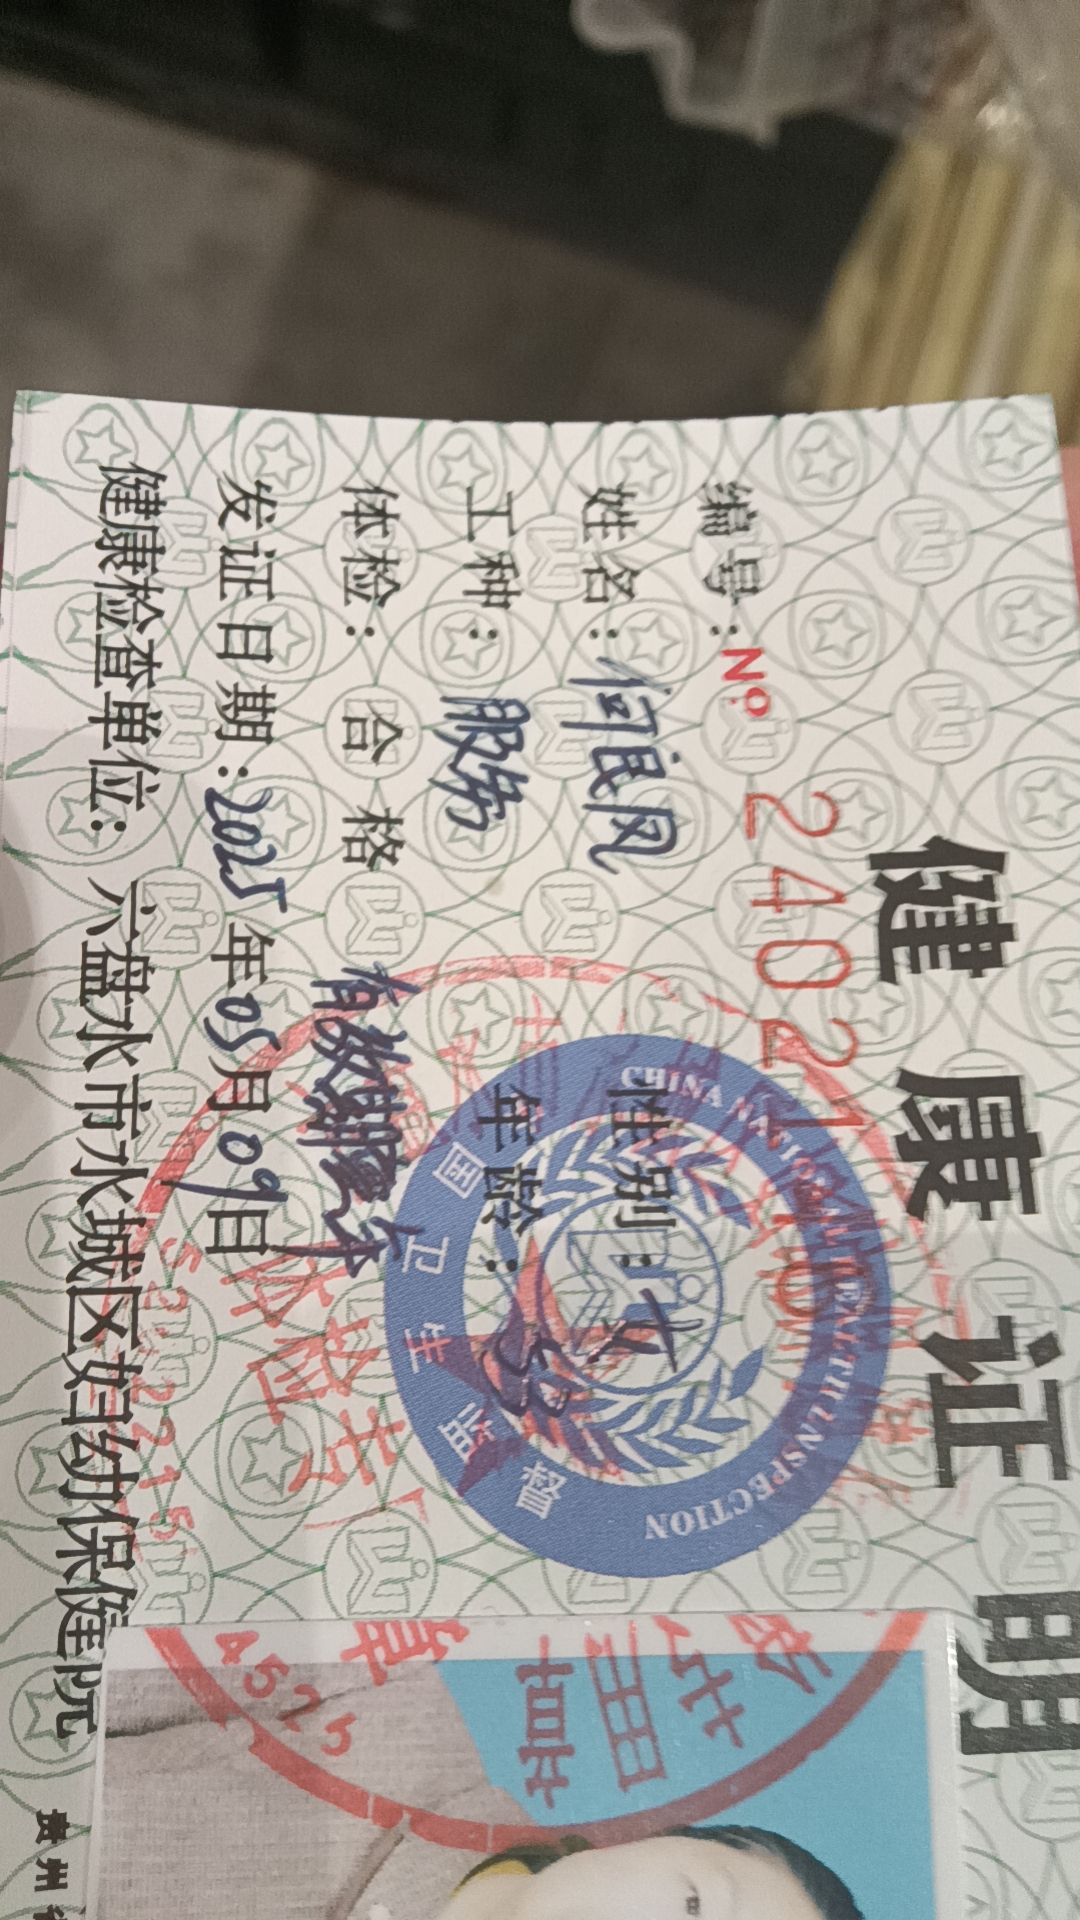 健康证明
编号：Nº 2402
姓名：何良凤
性别：女
工种：服务
年龄：
体检：合格
有效期壹年
发证日期：2025年05月09日
健康检查单位：六盘水市水城区妇幼保健院
CHINA NATIONAL HEALTH INSPECTION
国卫生监督
贵州省